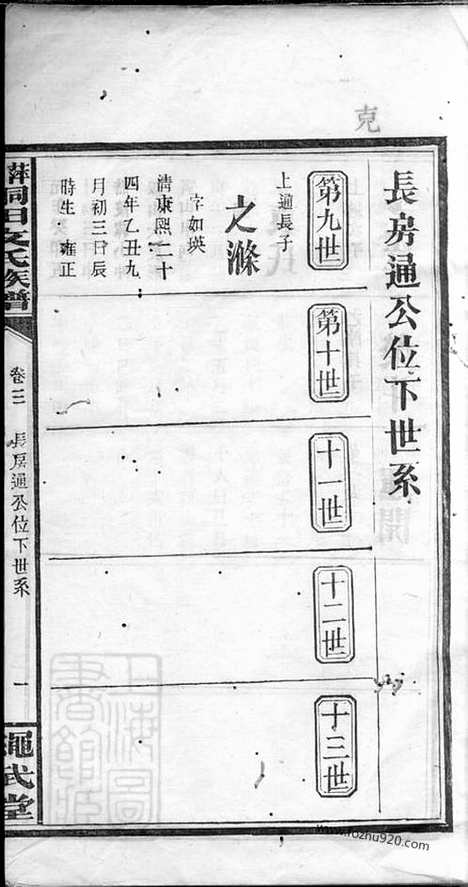 克
長房通公位下世系
第九世
上通長子
之滌
字如瑛
清康熙二十
四年乙丑九
月初三日辰
時生 雍正
第十世
十一世
十二世
十三世
田文氏族譜
卷三
長房通公位下世系
一
繩武堂
上海圖書館藏
www.fozhu920.com